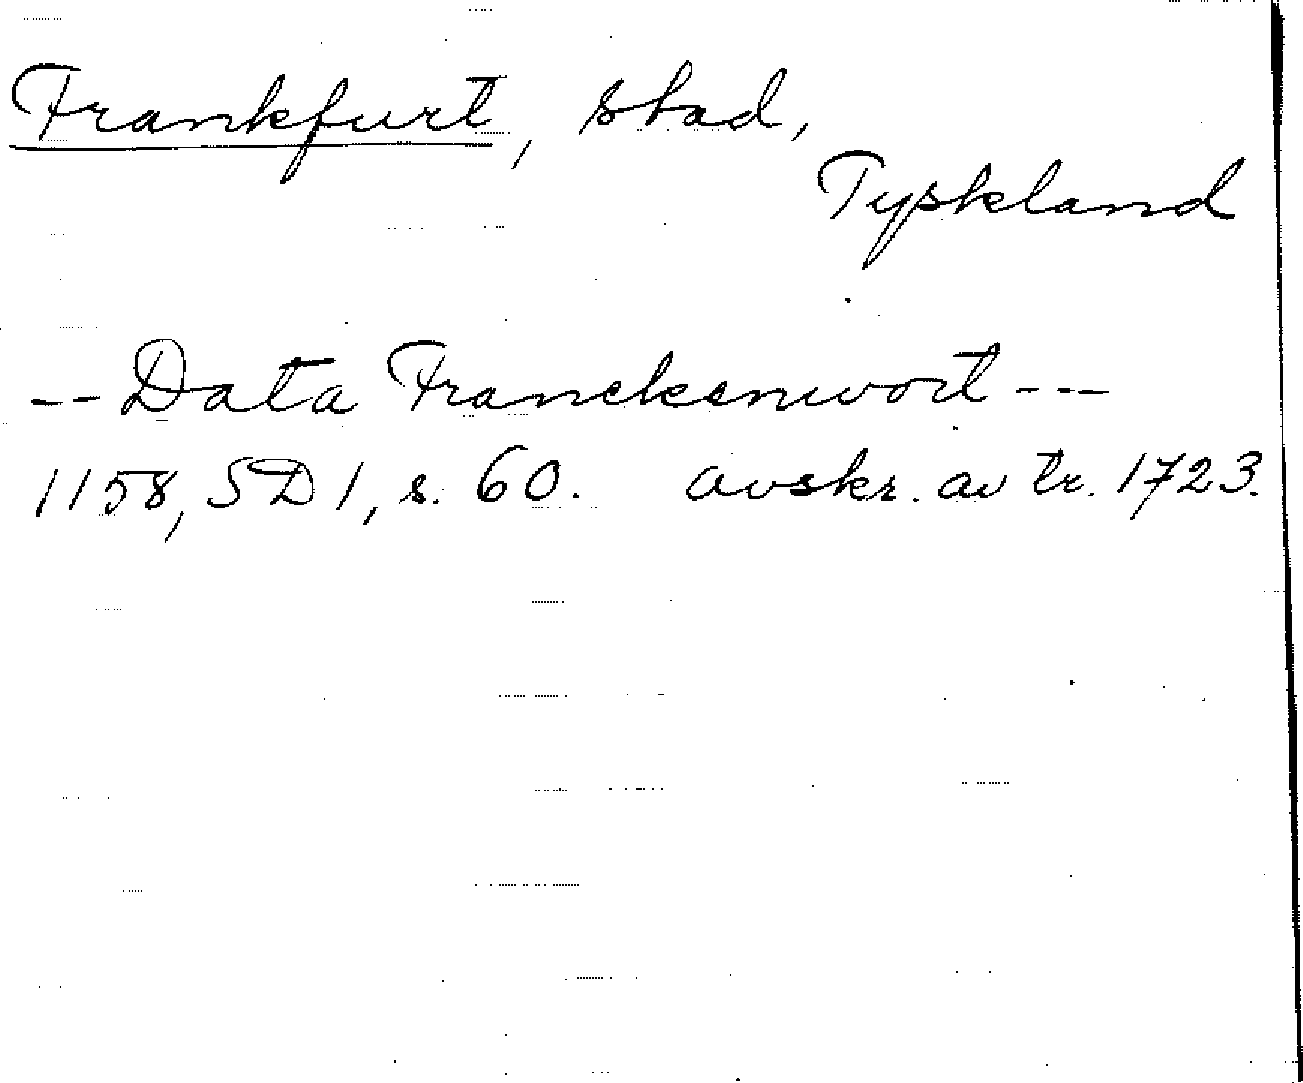 Frankfurt, stad,
Tyskland
-- Data Franckenwort ---
1158, SD 1, s. 60. avskr. av tr. 1723.